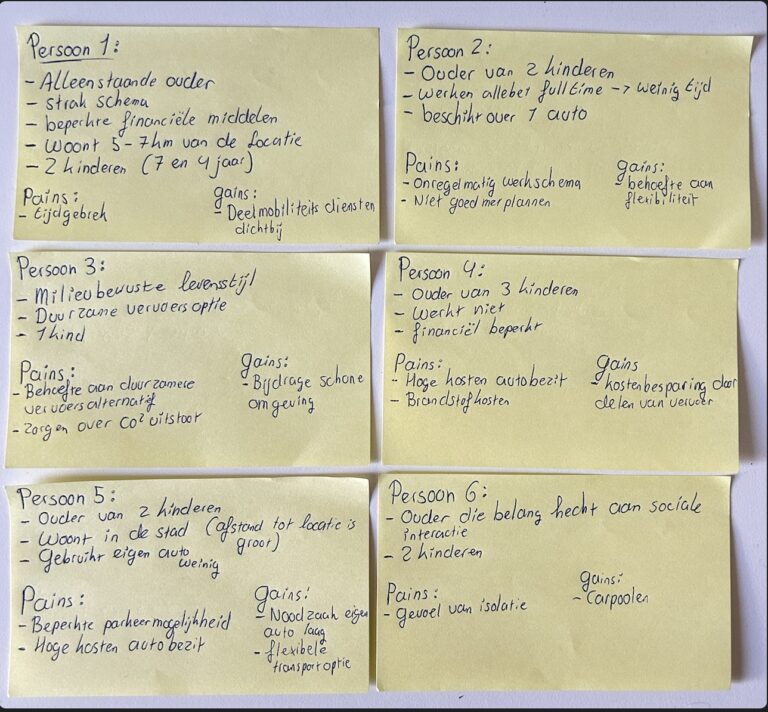 Persoon 1:
- Alleenstaande ouder
- strak schema
- beperkte financiële middelen
- Woont 5-7km van de locatie
- 2 kinderen (7 en 4 jaar)
Pains:
- tijdgebrek
gains:
- Deelmobiliteits diensten
dichtbij
Persoon 2:
- Ouder van 2 kinderen
- werken allebei fulltime -> weinig tijd
- beschikt over 1 auto
Pains:
- Onregelmatig werkschema
- Niet goed mee plannen
gains:
- behoefte aan
flexibiliteit
Persoon 3:
- Milieubewuste levensstijl
- Duurzame vervoersoptie
- 1 kind
Pains:
- Behoefte aan duurzamere
vervoersalternatief
- Zorgen over CO² uitstoot
gains:
- Bijdrage schone
omgeving
Persoon 4:
- Ouder van 3 kinderen
- Werkt niet
- financiël beperkt
Pains:
- Hoge kosten autobezit
- Brandstofkosten
gains
- kostenbesparing door
delen van vervoer
Persoon 5:
- Ouder van 2 kinderen
- Woont in de stad (afstand tot locatie is
groot)
- Gebruikt eigen auto
weinig
Pains:
- Beperkte parkeermogelijkheid
- Hoge kosten autobezit
gains:
- Noodzaak eigen
auto laag
- flexibele
transportoptie
Persoon 6:
- Ouder die belang hecht aan sociale
interactie
- 2 kinderen
Pains:
- gevoel van isolatie
gains:
- Carpoolen